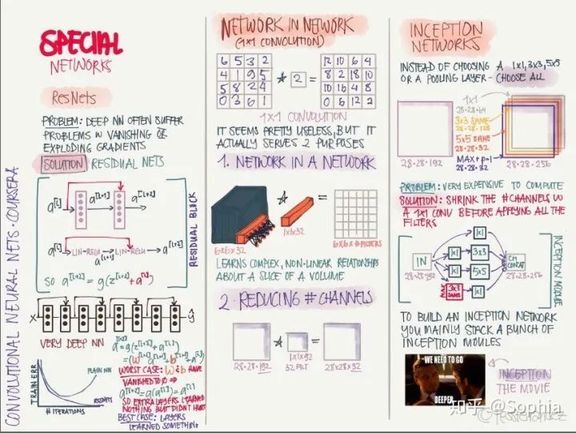 CONVOLUTIONAL NEURAL NETS - COURSERA
SPECIAL
NETWORKS
ResNets
PROBLEM: DEEP NN OFTEN SUFFER
PROBLEMS W VANISHING OR
EXPLODING GRADIENTS
SOLUTION RESIDUAL NETS
a[l]
a[l+1]
a[l+2]
RESIDUAL BLOCK
a[l] LIN-RELU LIN-RELU a[l+2]
a[l+1]
SO a[l+2] = g(z[l+2] + a[l])
X
ŷ
VERY DEEP NN
TRAIN ERR
PLAIN NN
RESNETS
# ITERATIONS
WORST CASE: W & b HAVE
VANISHED TO 0
SO EXTRA LAYERS LEARNED
NOTHING BUT DIDN'T HURT
BEST CASE: LAYERS
LEARNED SOMETHING
NETWORK IN NETWORK
(1x1 CONVOLUTION)
6 5 3 2
4 1 9 5
5 8 2 4
0 3 6 1
* 2 =
12 10 6 4
8 2 18 10
10 16 4 8
0 6 12 2
1x1 CONVOLUTION
IT SEEMS PRETTY USELESS, BUT IT
ACTUALLY SERVES 2 PURPOSES
1. NETWORK IN A NETWORK
6x6x32
*
1x1x32
=
6x6x # FILTERS
LEARNS COMPLEX, NON-LINEAR RELATIONSHIPS
ABOUT A SLICE OF A VOLUME
2. REDUCING # CHANNELS
28·28·192
*
1x1x192
32 FILT
=
28x28x32
INCEPTION
NETWORKS
INSTEAD OF CHOOSING A 1x1, 3x3, 5x5
OR A POOLING LAYER - CHOOSE ALL
28·28·192
1x1
28·28·64
3x3 SAME
28·28·128
5x5 SAME
28·28·32
MAX+POOL
28·28·32
28·28·256
PROBLEM: VERY EXPENSIVE TO COMPUTE
SOLUTION: SHRINK THE #CHANNELS W
A 1x1 CONV BEFORE APPLYING ALL THE
FILTERS
IN
28·28·192
1x1
1x1
3x3
1x1
5x5
1x1
CH
CONCAT
28·28·256
INCEPTION MODULE
TO BUILD AN INCEPTION NETWORK
YOU MAINLY STACK A BUNCH OF
INCEPTION MODULES
WE NEED TO GO
DEEPER
INCEPTION
THE MOVIE
知乎 @Sophia